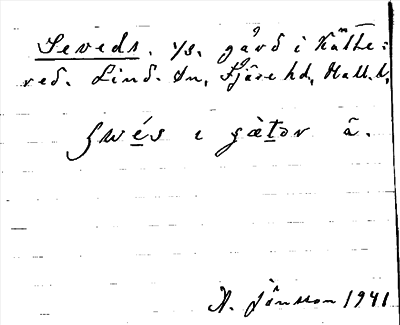 Seveds. 1/8. gård i Kätte=
red. Lind. sn, Fjäre hd, Hall. l,
swés ı gàtər â.
A. Jönsson 1941